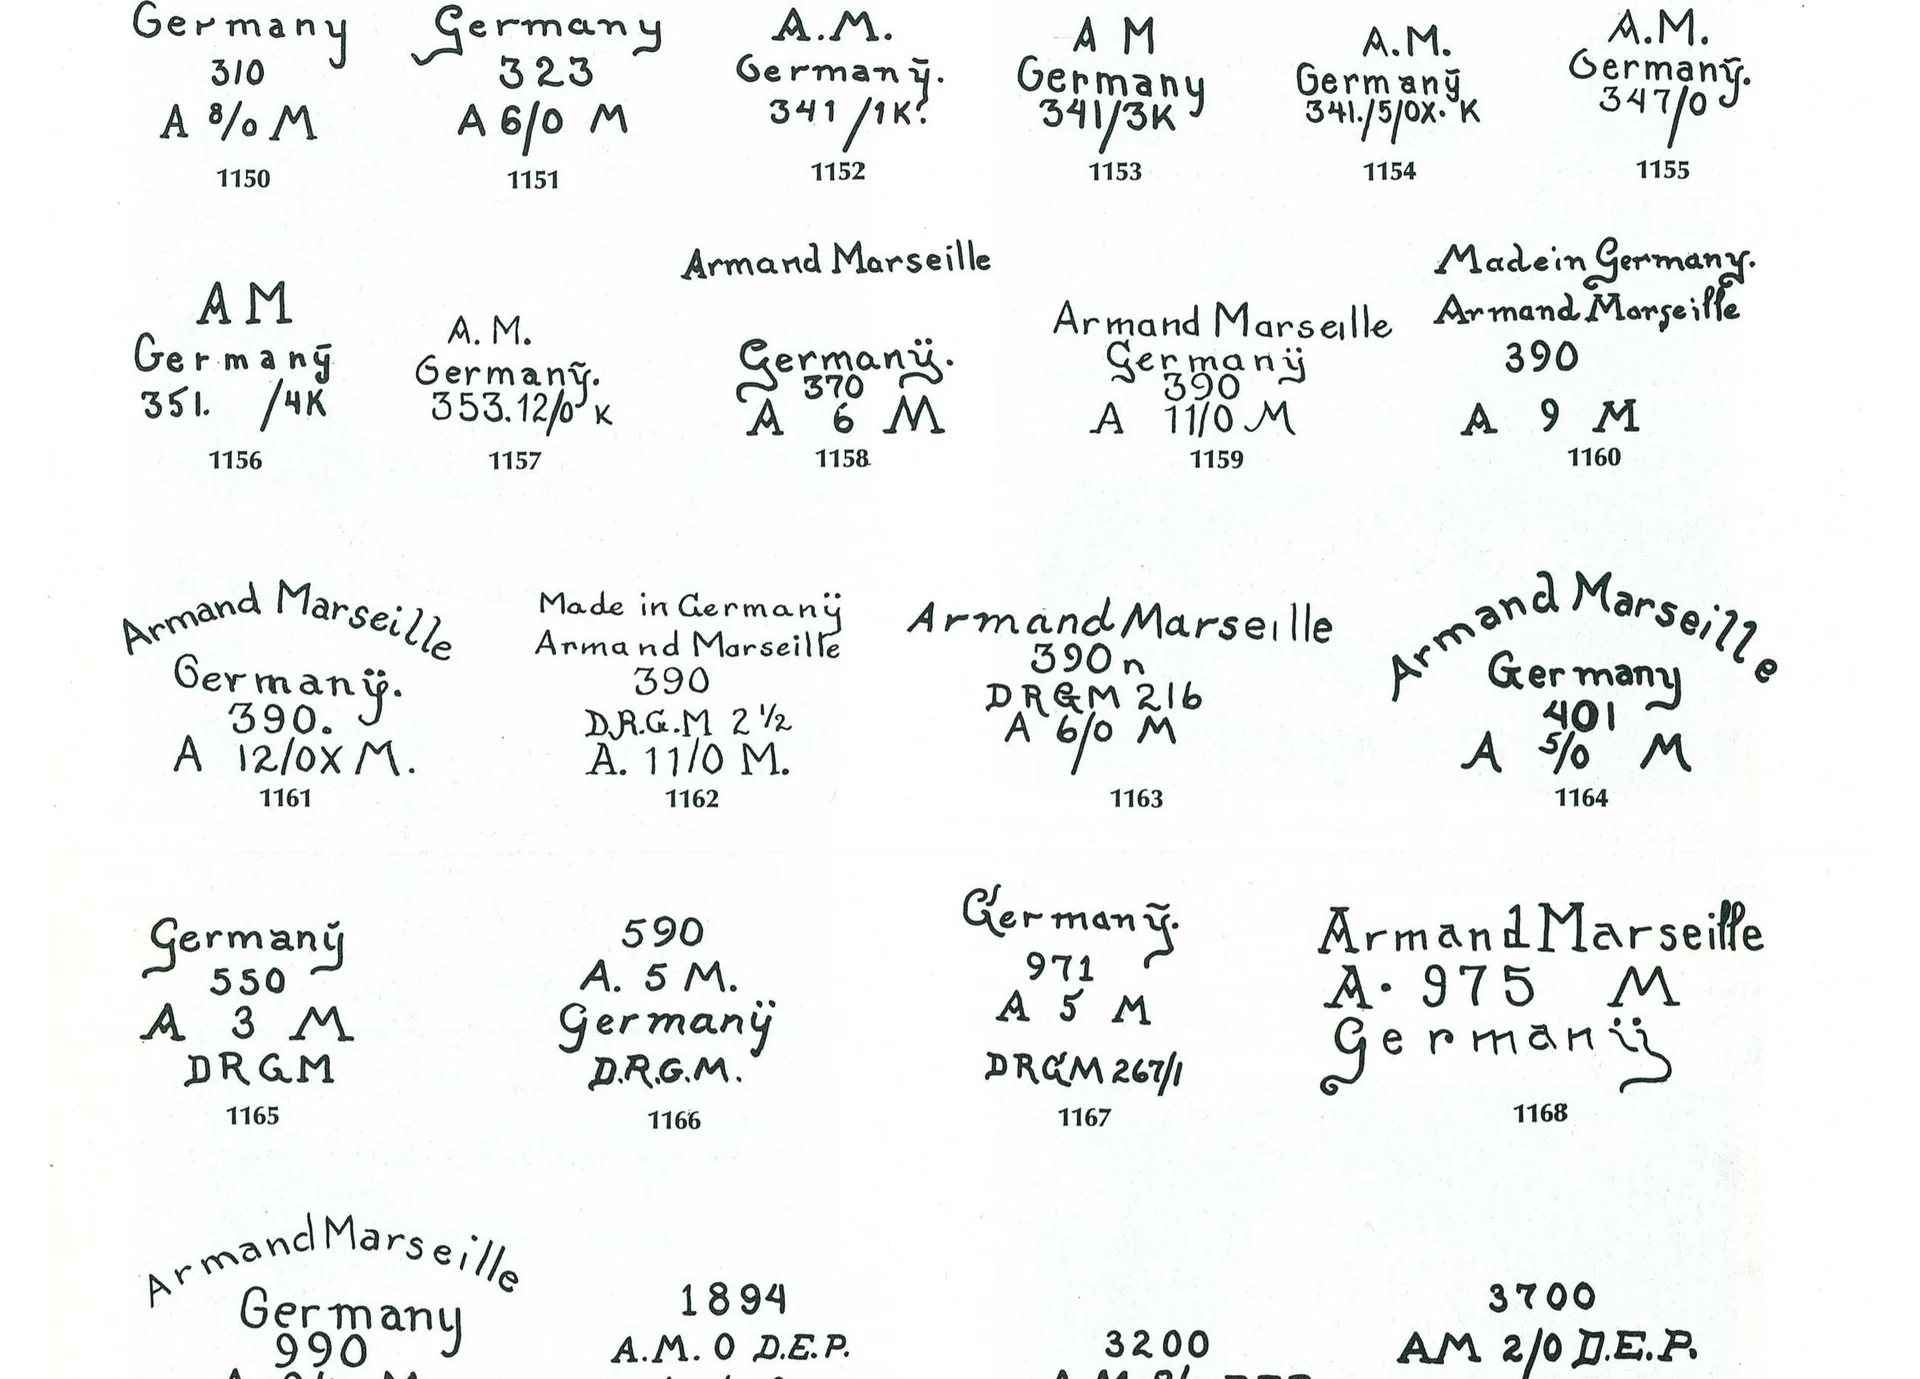 Germany
310
A 8/0 M
1150
Germany
323
A 6/0 M
1151
A.M.
Germany.
341/1K?
1152
A M
Germany
341/3K
1153
A.M.
Germany
341./5/0X. K
1154
A.M.
Germany.
347/0
1155
A M
Germany
351. /4K
1156
A. M.
Germany.
353.12/0 K
1157
Armand Marseille
Germanÿ.
370
A 6 M
1158
Armand Marseille
Germanÿ
390
A 11/0 M
1159
Made in Germany.
Armand Marseille
390
A 9 M
1160
Armand Marseille
Germanÿ.
390.
A 12/0X M.
1161
Made in Germanÿ
Armand Marseille
390
D.R.G.M 2 ½
A. 11/0 M.
1162
Armand Marseille
390 n
DRGM 216
A 6/0 M
1163
Armand Marseille
Germany
401
A 5/0 M
1164
Germany
550
A 3 M
DRGM
1165
590
A. 5 M.
Germanÿ
D.R.G.M.
1166
Germany.
971
A 5 M
DRGM 267/1
1167
Armand Marseille
A. 975 M
Germanÿ
1168
Armand Marseille
Germany
990
1894
A.M. 0 D.E.P.
3200
3700
AM 2/0 D.E.P.